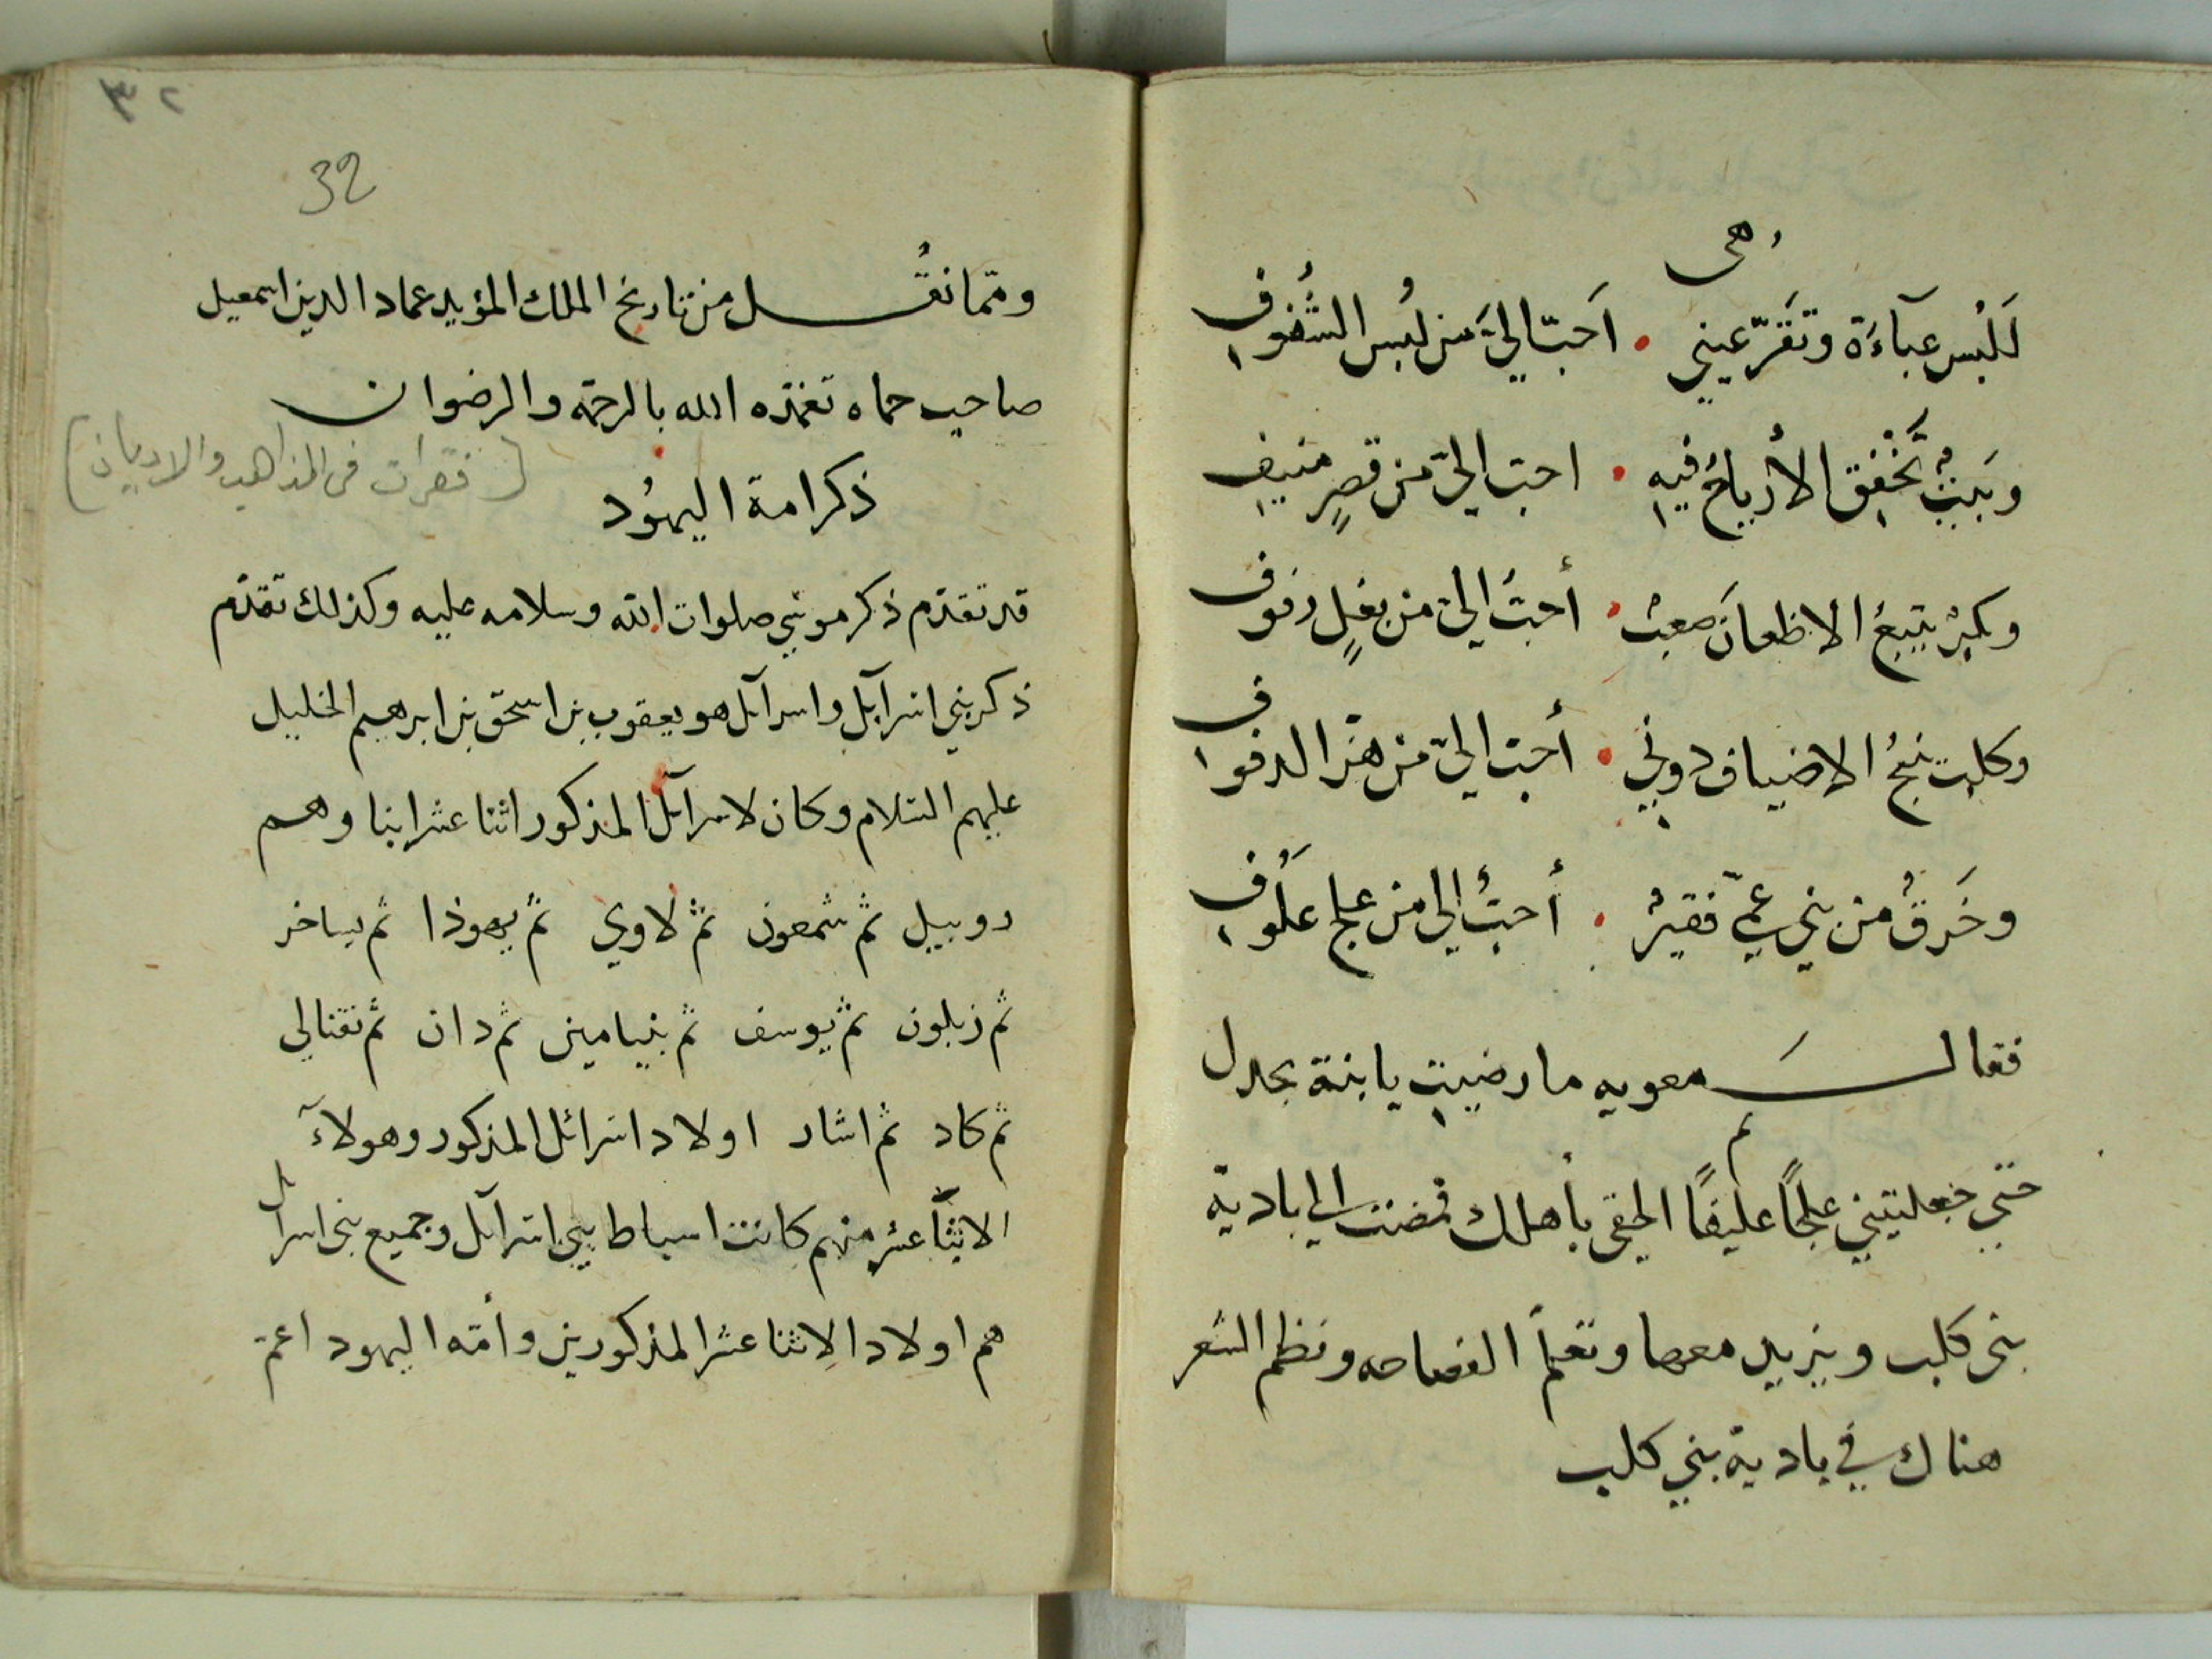 هى
لَلُبس عبآءَة وتَقَرّ عيني . اَحَبّ اليَّ من لُبس الشُفوف
وبَيتٌ تَخْفِق الأرياحُ فيهِ . احبّ اليّ من قصرٍ منيف
وبكرٌ يتبعُ الاظعانَ صَعبٌ . أحبّ اليّ من بغلٍ زفوف
وكلب ينبحُ الاضياف دوني . أحبّ اليّ من هزّ الدفوف
وخَرقٌ من بني عمّي فقيرٌ . أحبُّ الي من علج علَوف
فقالَ معويه ما رضيتِ يا بنة بحدل
حتي جعلتيني علجًا عليفًا الحقى بأهلك فمضت الي بادية
بنى كلب ويزيد معها وتعلم الفصاحه ونظم الشعر
هناك في بادية بني كلب
٣٢
32
وممّا نقُل من تاريخ الملك المؤيد عماد الدين اسمعيل
صاحب حماه تغمّده الله بالرحمة والرضوان
(فقرات فى المذاهب والاديان)
ذكر امة اليهُود
قد تقدّم ذكر موسي صلوات الله وسلامه عليه وكذلك تقدّم
ذكر بني اسرآيل واسرآئل هو يعقوب بن اسحق بن ابرهيم الخليل
عليهم السّلام وكان لاسرآئل المذكور اثنا عشر ابنا وهم
روبيل ثم شمعون ثم لاوي ثم يهوذا ثم يساخر
ثم زبلون ثم يوسف ثم بنيامين ثم دان ثم نفتالي
ثم كاد ثم اشار اولاد اسرائل المذكور وهولآء
الاثنا عشر منهم كانت اسباط بني اسرآئل وجميع بنى اسرآئل
هم اولاد الاثنا عشر المذكورين وأمّة اليهود اعمّ